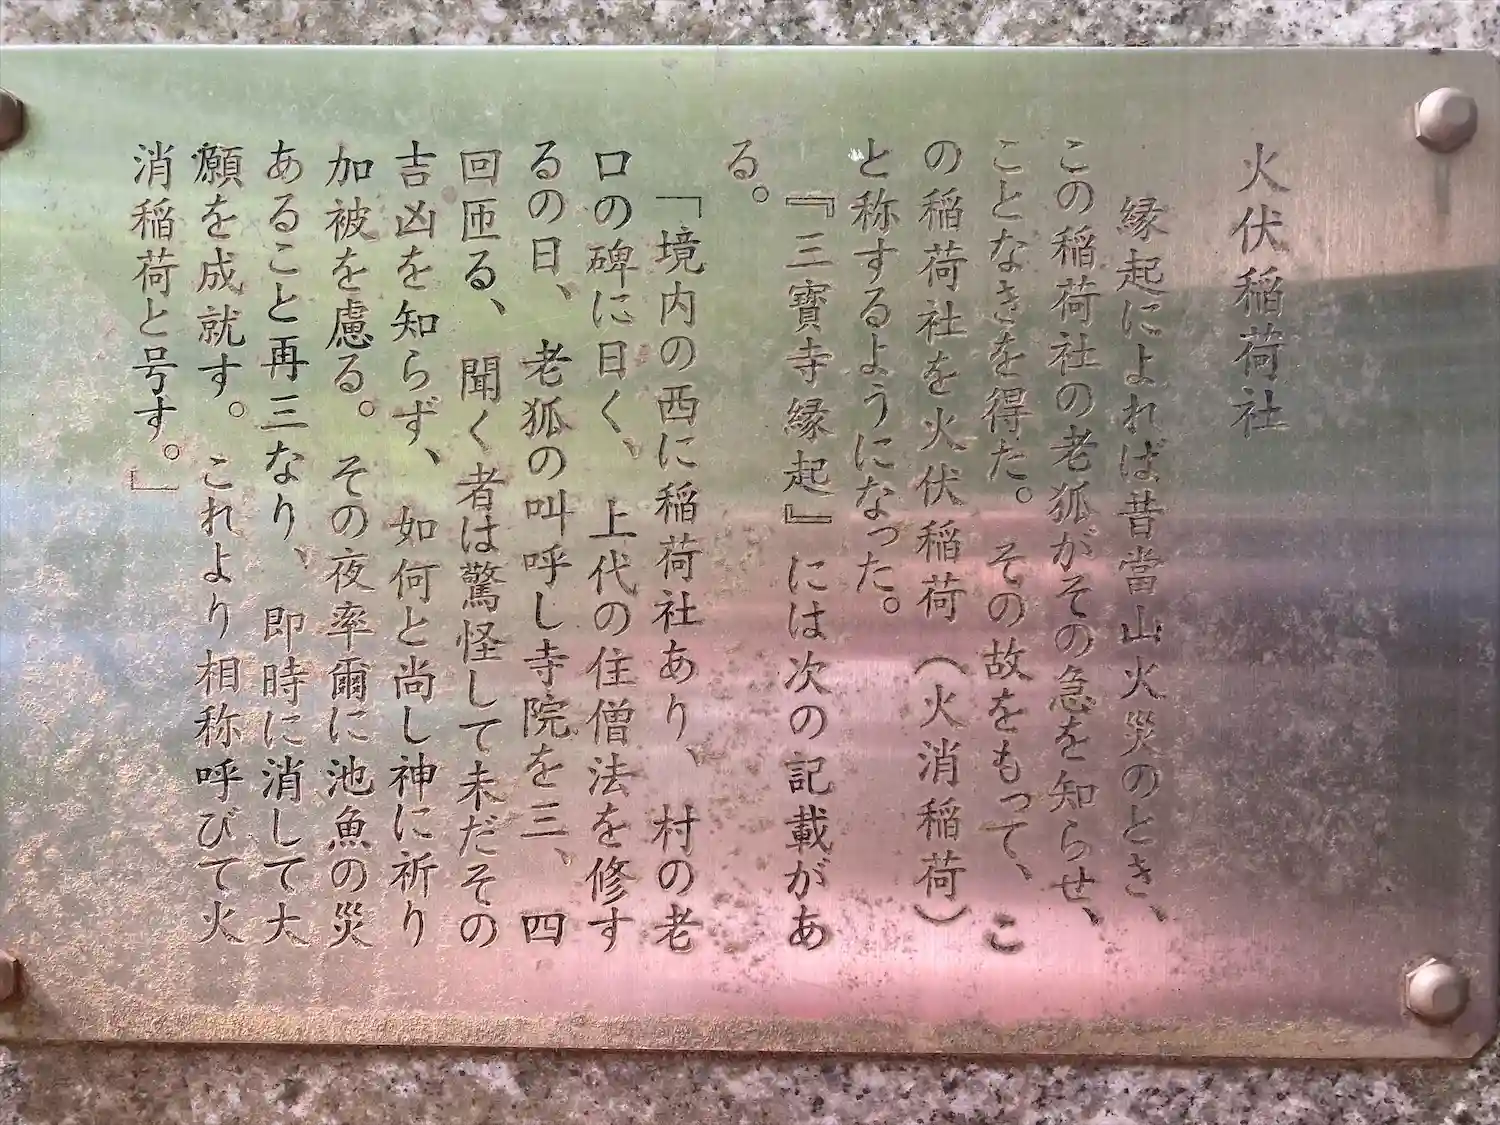 火伏稲荷社
縁起によれば昔當山火災のとき、
この稲荷社の老狐がその急を知らせ、
ことなきを得た。その故をもって、こ
の稲荷社を火伏稲荷（火消稲荷）
と称するようになった。
『三寶寺縁起』には次の記載があ
る。
「境内の西に稲荷社あり、村の老
口の碑に曰く、上代の住僧法を修す
るの日、老狐の叫呼し寺院を三、四
回匝る、聞く者は驚怪して未だその
吉凶を知らず、如何と尚し神に祈り
加被を慮る。その夜率爾に池魚の災
あること再三なり、即時に消して大
願を成就す。これより相称呼びて火
消稲荷と号す。」